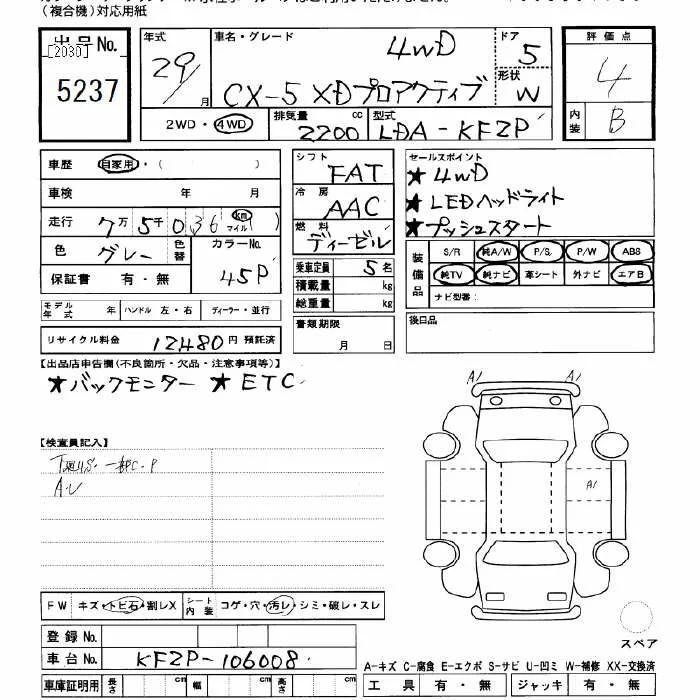 (複合機)対応用紙
出品No. [2030] 5237
年式 29 月
車名・グレード 4WD
CX-5 XDプロアクティブ
ドア 5
形状 W
2WD・4WD 排気量 2200 cc 型式 LDA-KF2P
評価点 4
内装 B
車歴 自家用・( )
車検 年 月
走行 7万5千036 (km マイル)
色 グレー 色替 カラーNo. 45P
保証書 有・無
モデル年式 年 ハンドル 左・右 ディーラー・並行
リサイクル料金 12480円 預託済
シフト FAT
冷房 AAC
燃料 ディーゼル
乗車定員 5名
積載量 kg
総重量 kg
書類期限 月 日
セールスポイント
★4WD
★LEDヘッドライト
★プッシュスタート
装備品 S/R 純A/W P/S P/W ABS
純TV 純ナビ 革シート 外ナビ エアB
ナビ型番:
後日品
【出品店申告欄(不良箇所・欠品・注意事項等)】
★バックモニター ★ETC
【検査員記入】
A・U
A1 A1
A1
FW キズ・トビ石・割レX シート内装 コゲ・穴・汚レ・シミ・破レ・スレ
登録No.
車台No. KF2P-106008
車庫証明用 長さ cm 幅 cm 高さ cm
スペア
A-キズ C-腐食 E-エクボ S-サビ U-凹ミ W-補修 XX-交換済
工具 有・無 ジャッキ 有・無